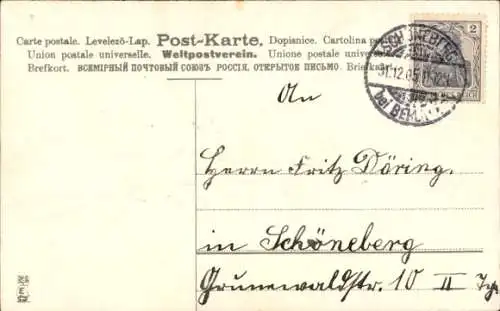 Carte postale. Levelező-Lap. Post-Karte. Dopisnice. Cartolina postale.
Union postale universelle. Weltpostverein. Unione postale universale.
Brefkort. ВСЕМІРНЫЙ ПОЧТОВЫЙ СОЮЗЪ РОССІЯ. ОТКРЫТОЕ ПИСЬМО. Briefkaart
2
SCHÖNEBERG
31.12.05
bei BERLIN
An
Herrn Fritz Döring.
in Schöneberg
Grunewaldstr. 10 II